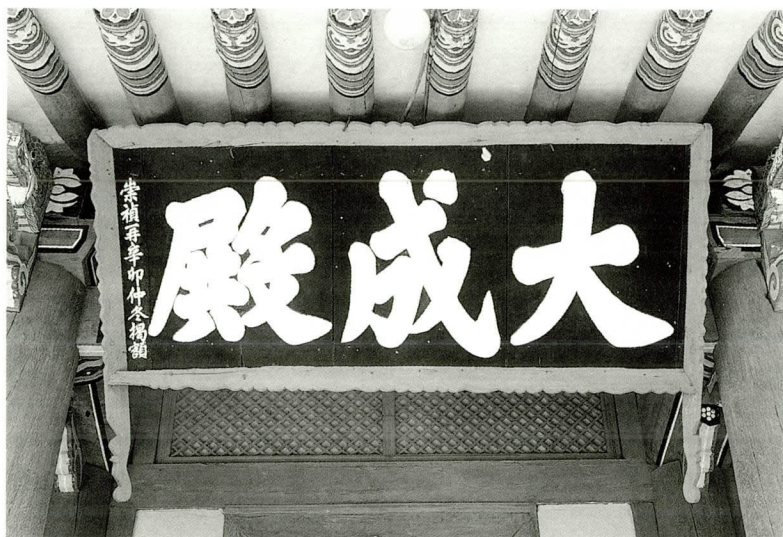 大成殿
崇禎再辛卯仲冬揭額